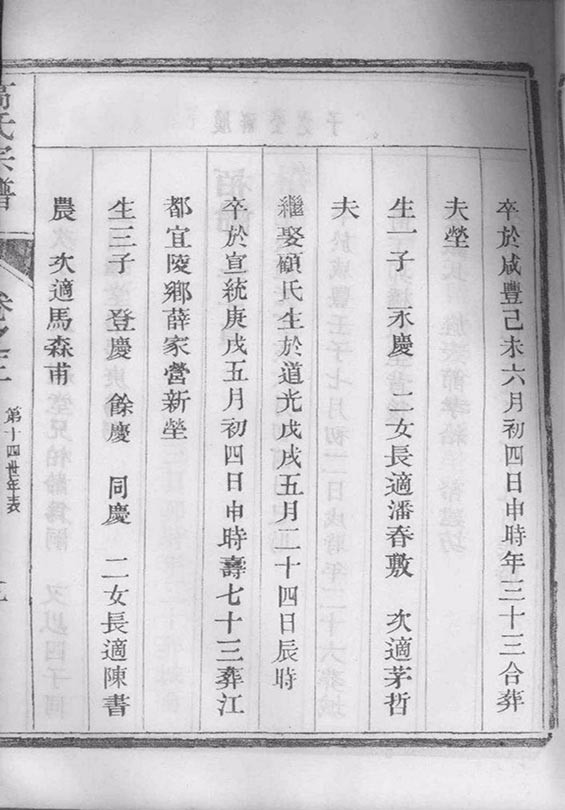 卒於咸豐己未六月初四日申時年三十三合葬
夫塋
生一子　永慶　二女長適潘春敷　次適茅哲
夫
繼娶顧氏生於道光戊戌五月二十四日辰時
卒於宣統庚戌五月初四日申時壽七十三葬江
都宜陵鄉薛家營新塋
生三子　登慶　餘慶　同慶　二女長適陳書
農　次適馬森甫
高氏宗譜
第十四世年表